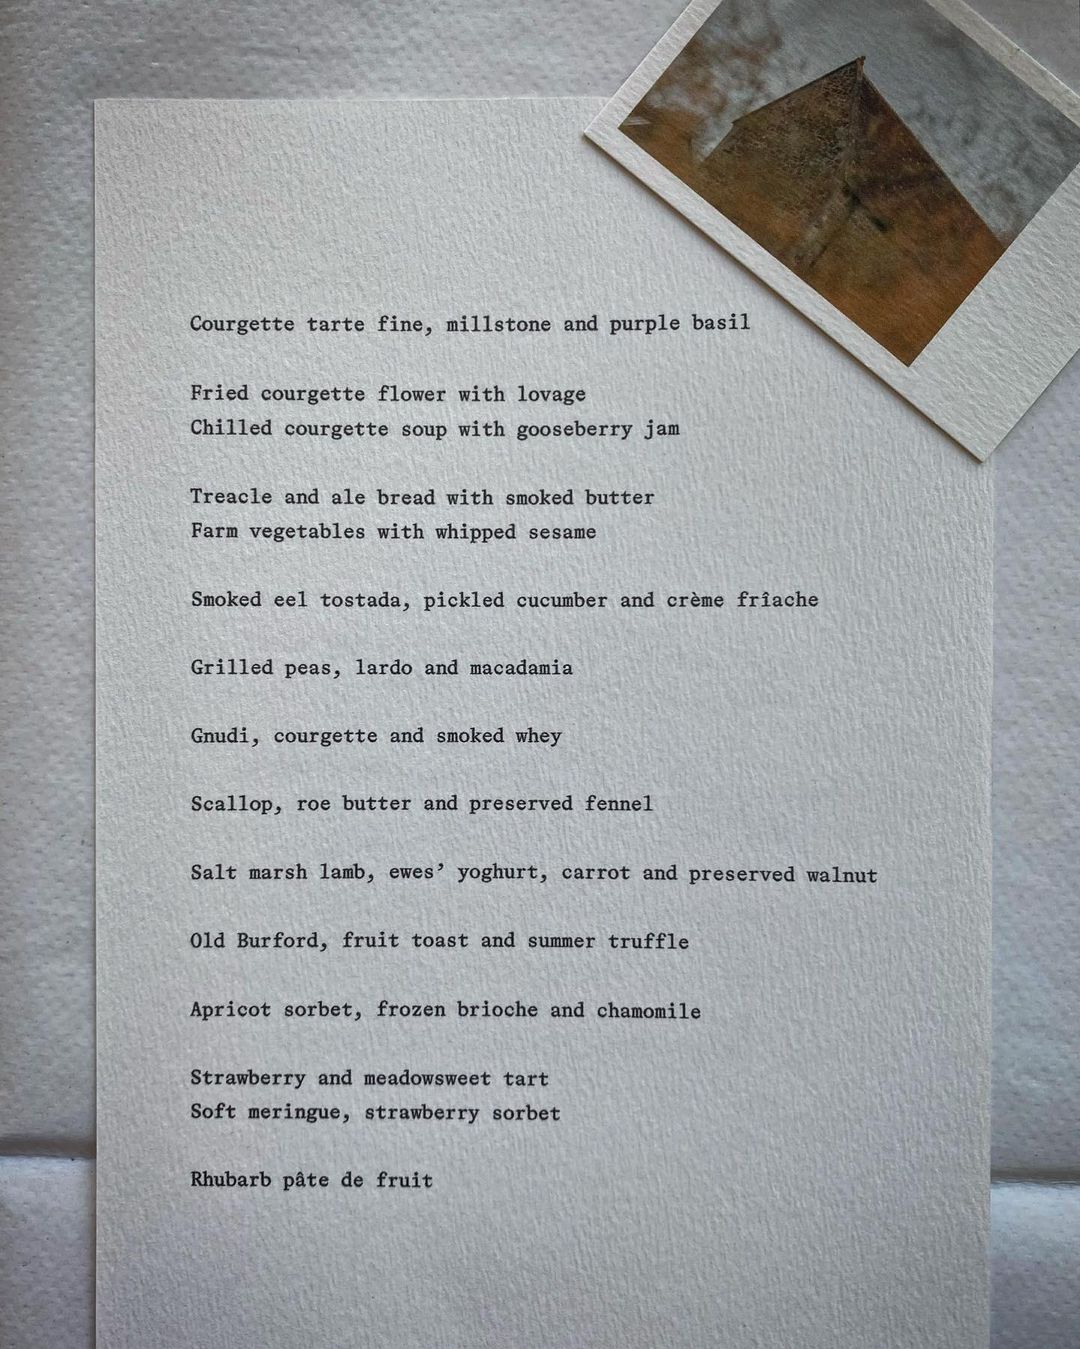 Courgette tarte fine, millstone and purple basil
Fried courgette flower with lovage
Chilled courgette soup with gooseberry jam
Treacle and ale bread with smoked butter
Farm vegetables with whipped sesame
Smoked eel tostada, pickled cucumber and crème frîache
Grilled peas, lardo and macadamia
Gnudi, courgette and smoked whey
Scallop, roe butter and preserved fennel
Salt marsh lamb, ewes’ yoghurt, carrot and preserved walnut
Old Burford, fruit toast and summer truffle
Apricot sorbet, frozen brioche and chamomile
Strawberry and meadowsweet tart
Soft meringue, strawberry sorbet
Rhubarb pâte de fruit